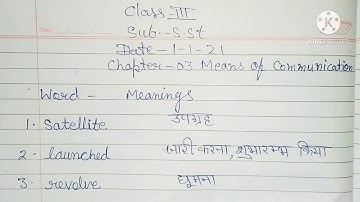 Class-III
Sub:-S.St
Date-1-1-21
Chapter-03 Means of Communication
Word - Meanings
1. Satellite उपग्रह
2. launched जारी करना, शुभारम्भ किया
3. revolve घूमना